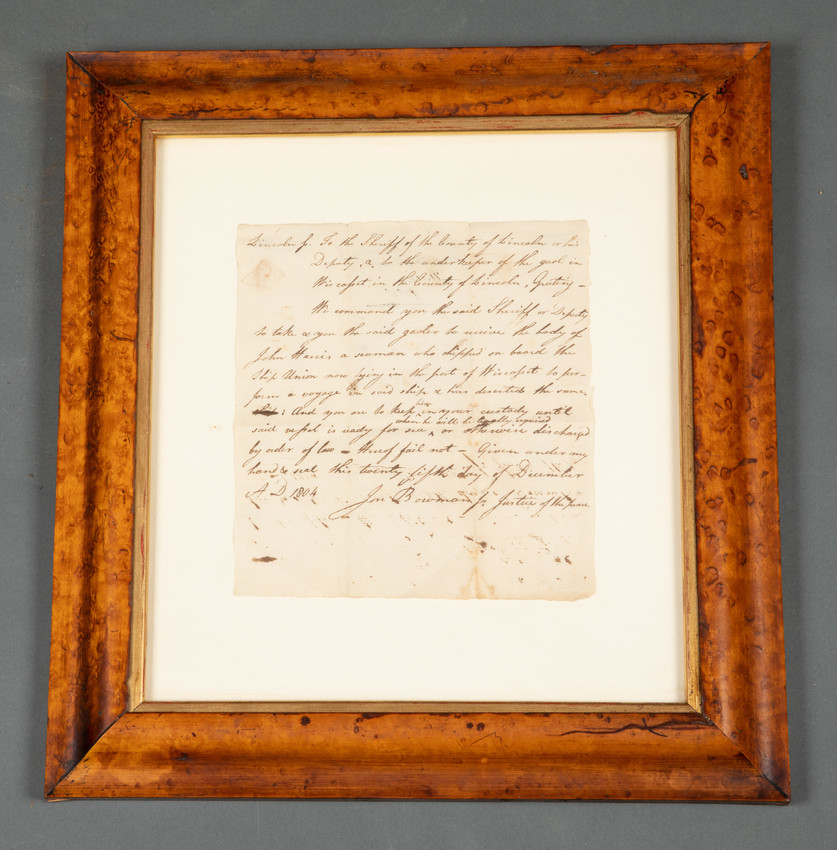 Lincoln ss. To the Sheriff of the County of Lincoln or his
Deputy, & to the under keeper of the gaol in
Wiscasset in the County of Lincoln, Greeting –
We command you the said Sheriff or Deputy
to take & you the said gaoler to receive the body of
John Harris a seaman who shipped on board the
Ship Union now lying in the port of Wiscasset to per-
form a voyage in said ship & has deserted the same
: And you are to keep him in your custody until
said vessel is ready for sea, when he will be legally required or otherwise discharged
by order of law – Hereof fail not – Given under my
hand & seal this twenty fifth day of December
A.D. 1804 Jon Bowman Jr Justice of the peace